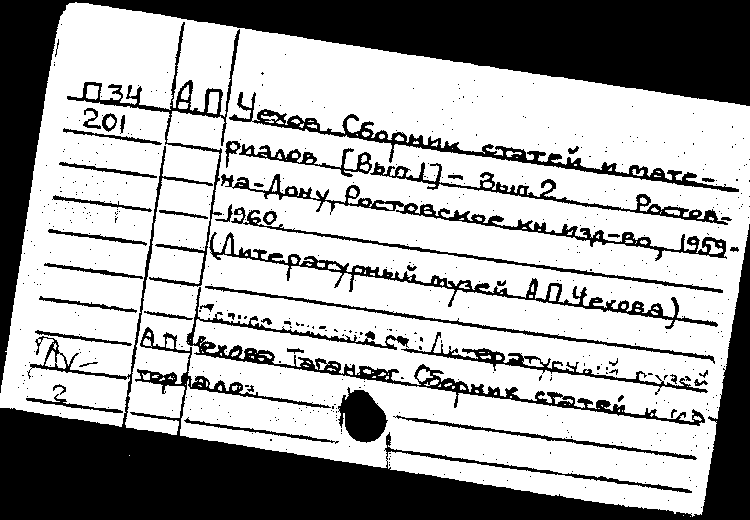 П34 А.П Чехов. Сборник статей и мате-
201 риалов. [Вып.1] - Вып.2. Ростов-
на-Дону, Ростовское кн. изд-во, 1959-
-1960.
(Литературный музей А.П.Чехова)
Полное описание см: Литературный музей
А.П. Чехова. Таганрог. Сборник статей и ма-
териалов.
2